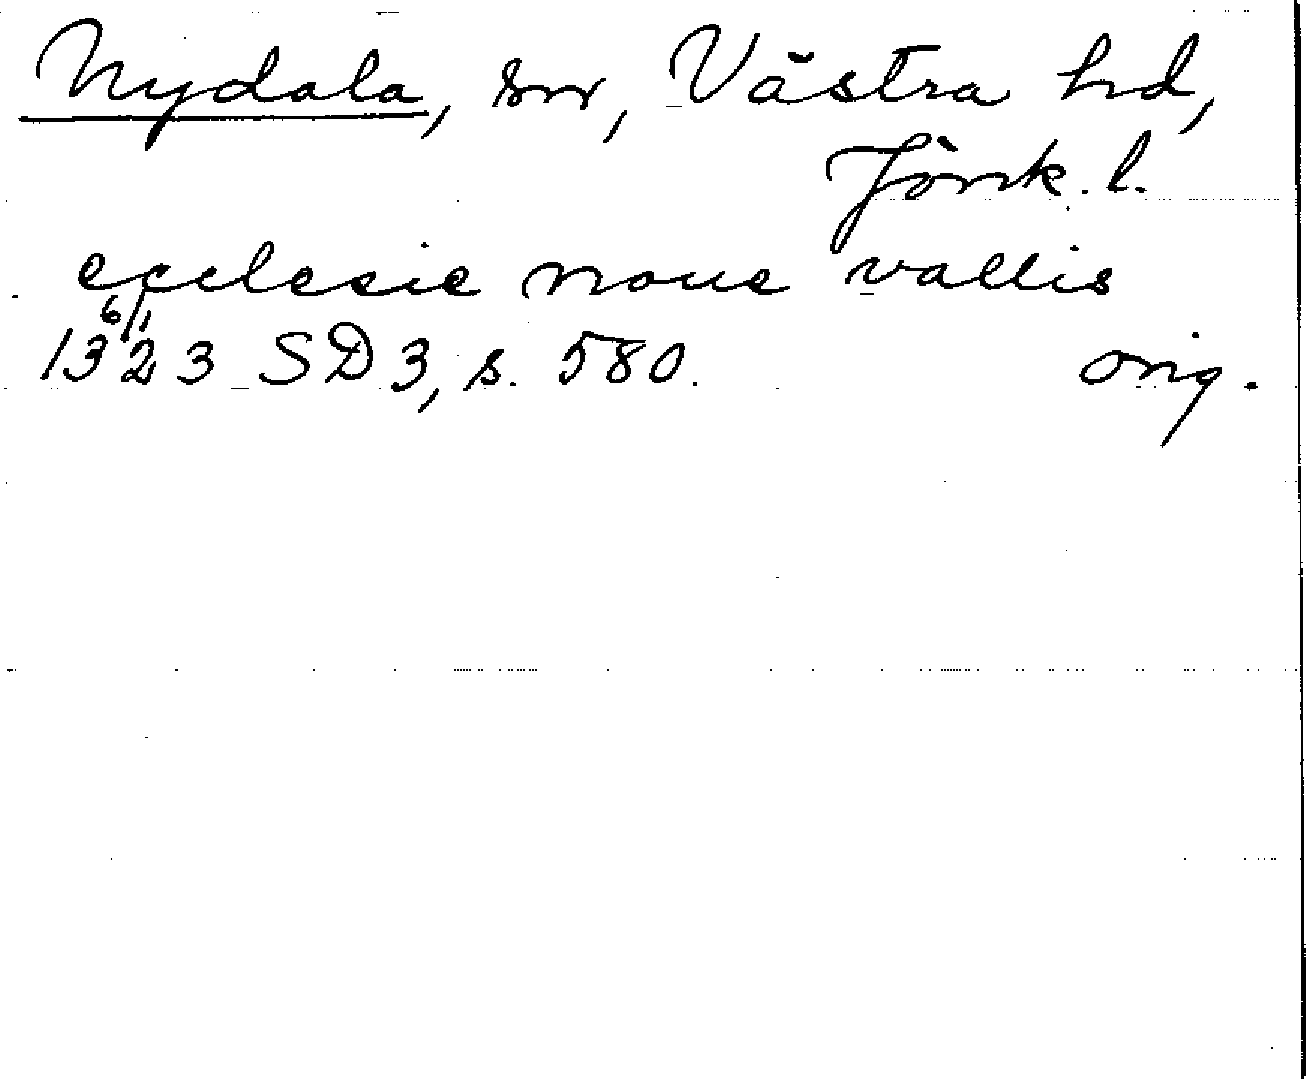 Nydala, sn, Västra hd,
Jönk. l.
ecclesie noue vallis
6/1
1323 SD 3, s. 580. orig.